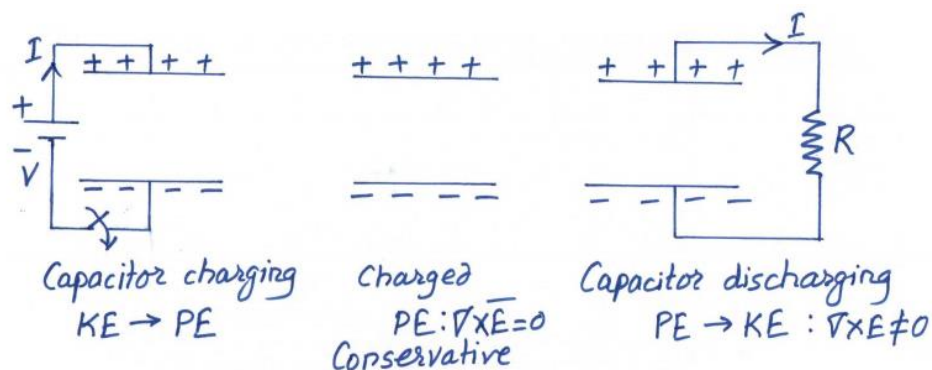 I
+ + + +
+
−
V
Capacitor charging
KE → PE
+ + + +
− − − −
Charged
PE : ∇×E̅ = 0
Conservative
I
+ + + +
R
− − − −
Capacitor discharging
PE → KE : ∇×E ≠ 0